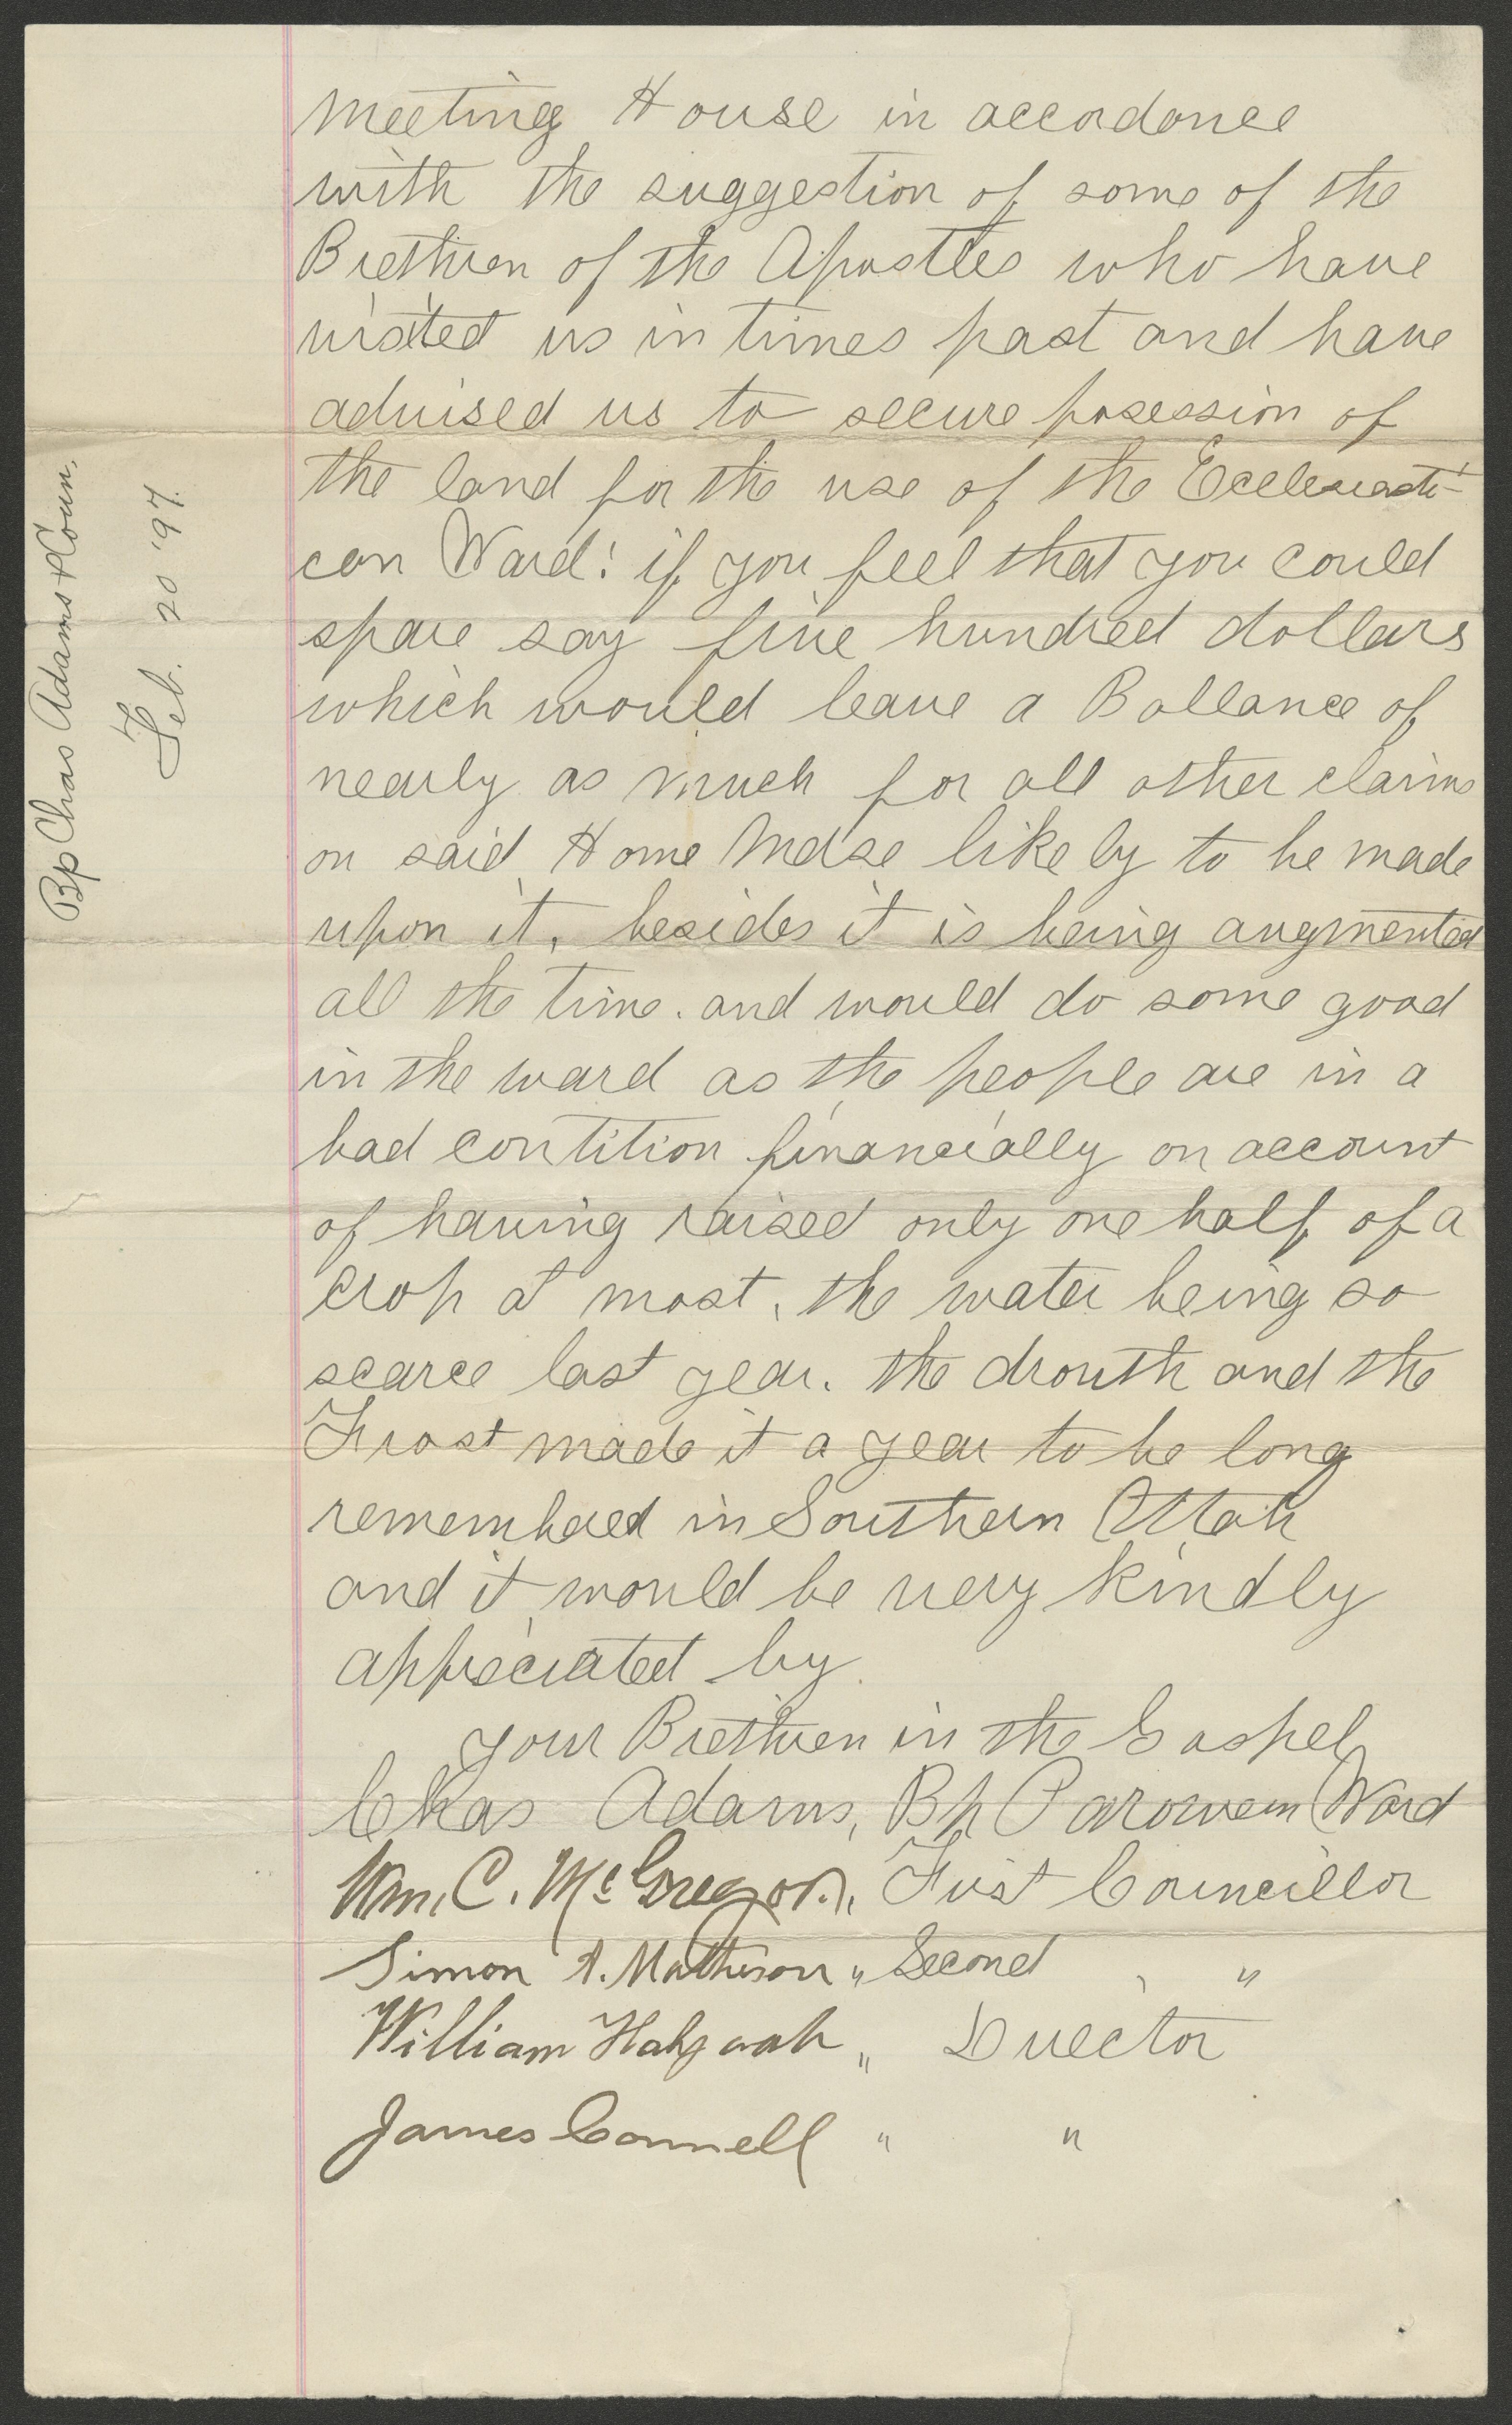 Meeting House in accordance
with the suggestion of some of the
Brethren of the Apostles who have
visited us in times past and have
advised us to secure posession of
the land for the use of the Ecclesiasti-
can Ward: if you feel that you could
spare say five hundred dollars
which would leave a Ballance of
nearly as much for all other claims
on said Home Mdse likely to be made
upon it, besides it is being augmented
all the time. and would do some good
in the ward as the people are in a
bad contition financially on account
of having raised only one half of a
crop at most, the water being so
scarce last year. the drouth and the
Frost made it a year to be long
rememberd in Southern Utah
and it would be very kindly
appreciated by
your Brethren in the Gospel
Chas Adams, Bp Parowan Ward
Wm. C. McGregor, First Councillor
Simon A. Matheson " Second "
William " Director
James Connell " "
Bp Chas Adams & Coun.
Feb. 20 '97.